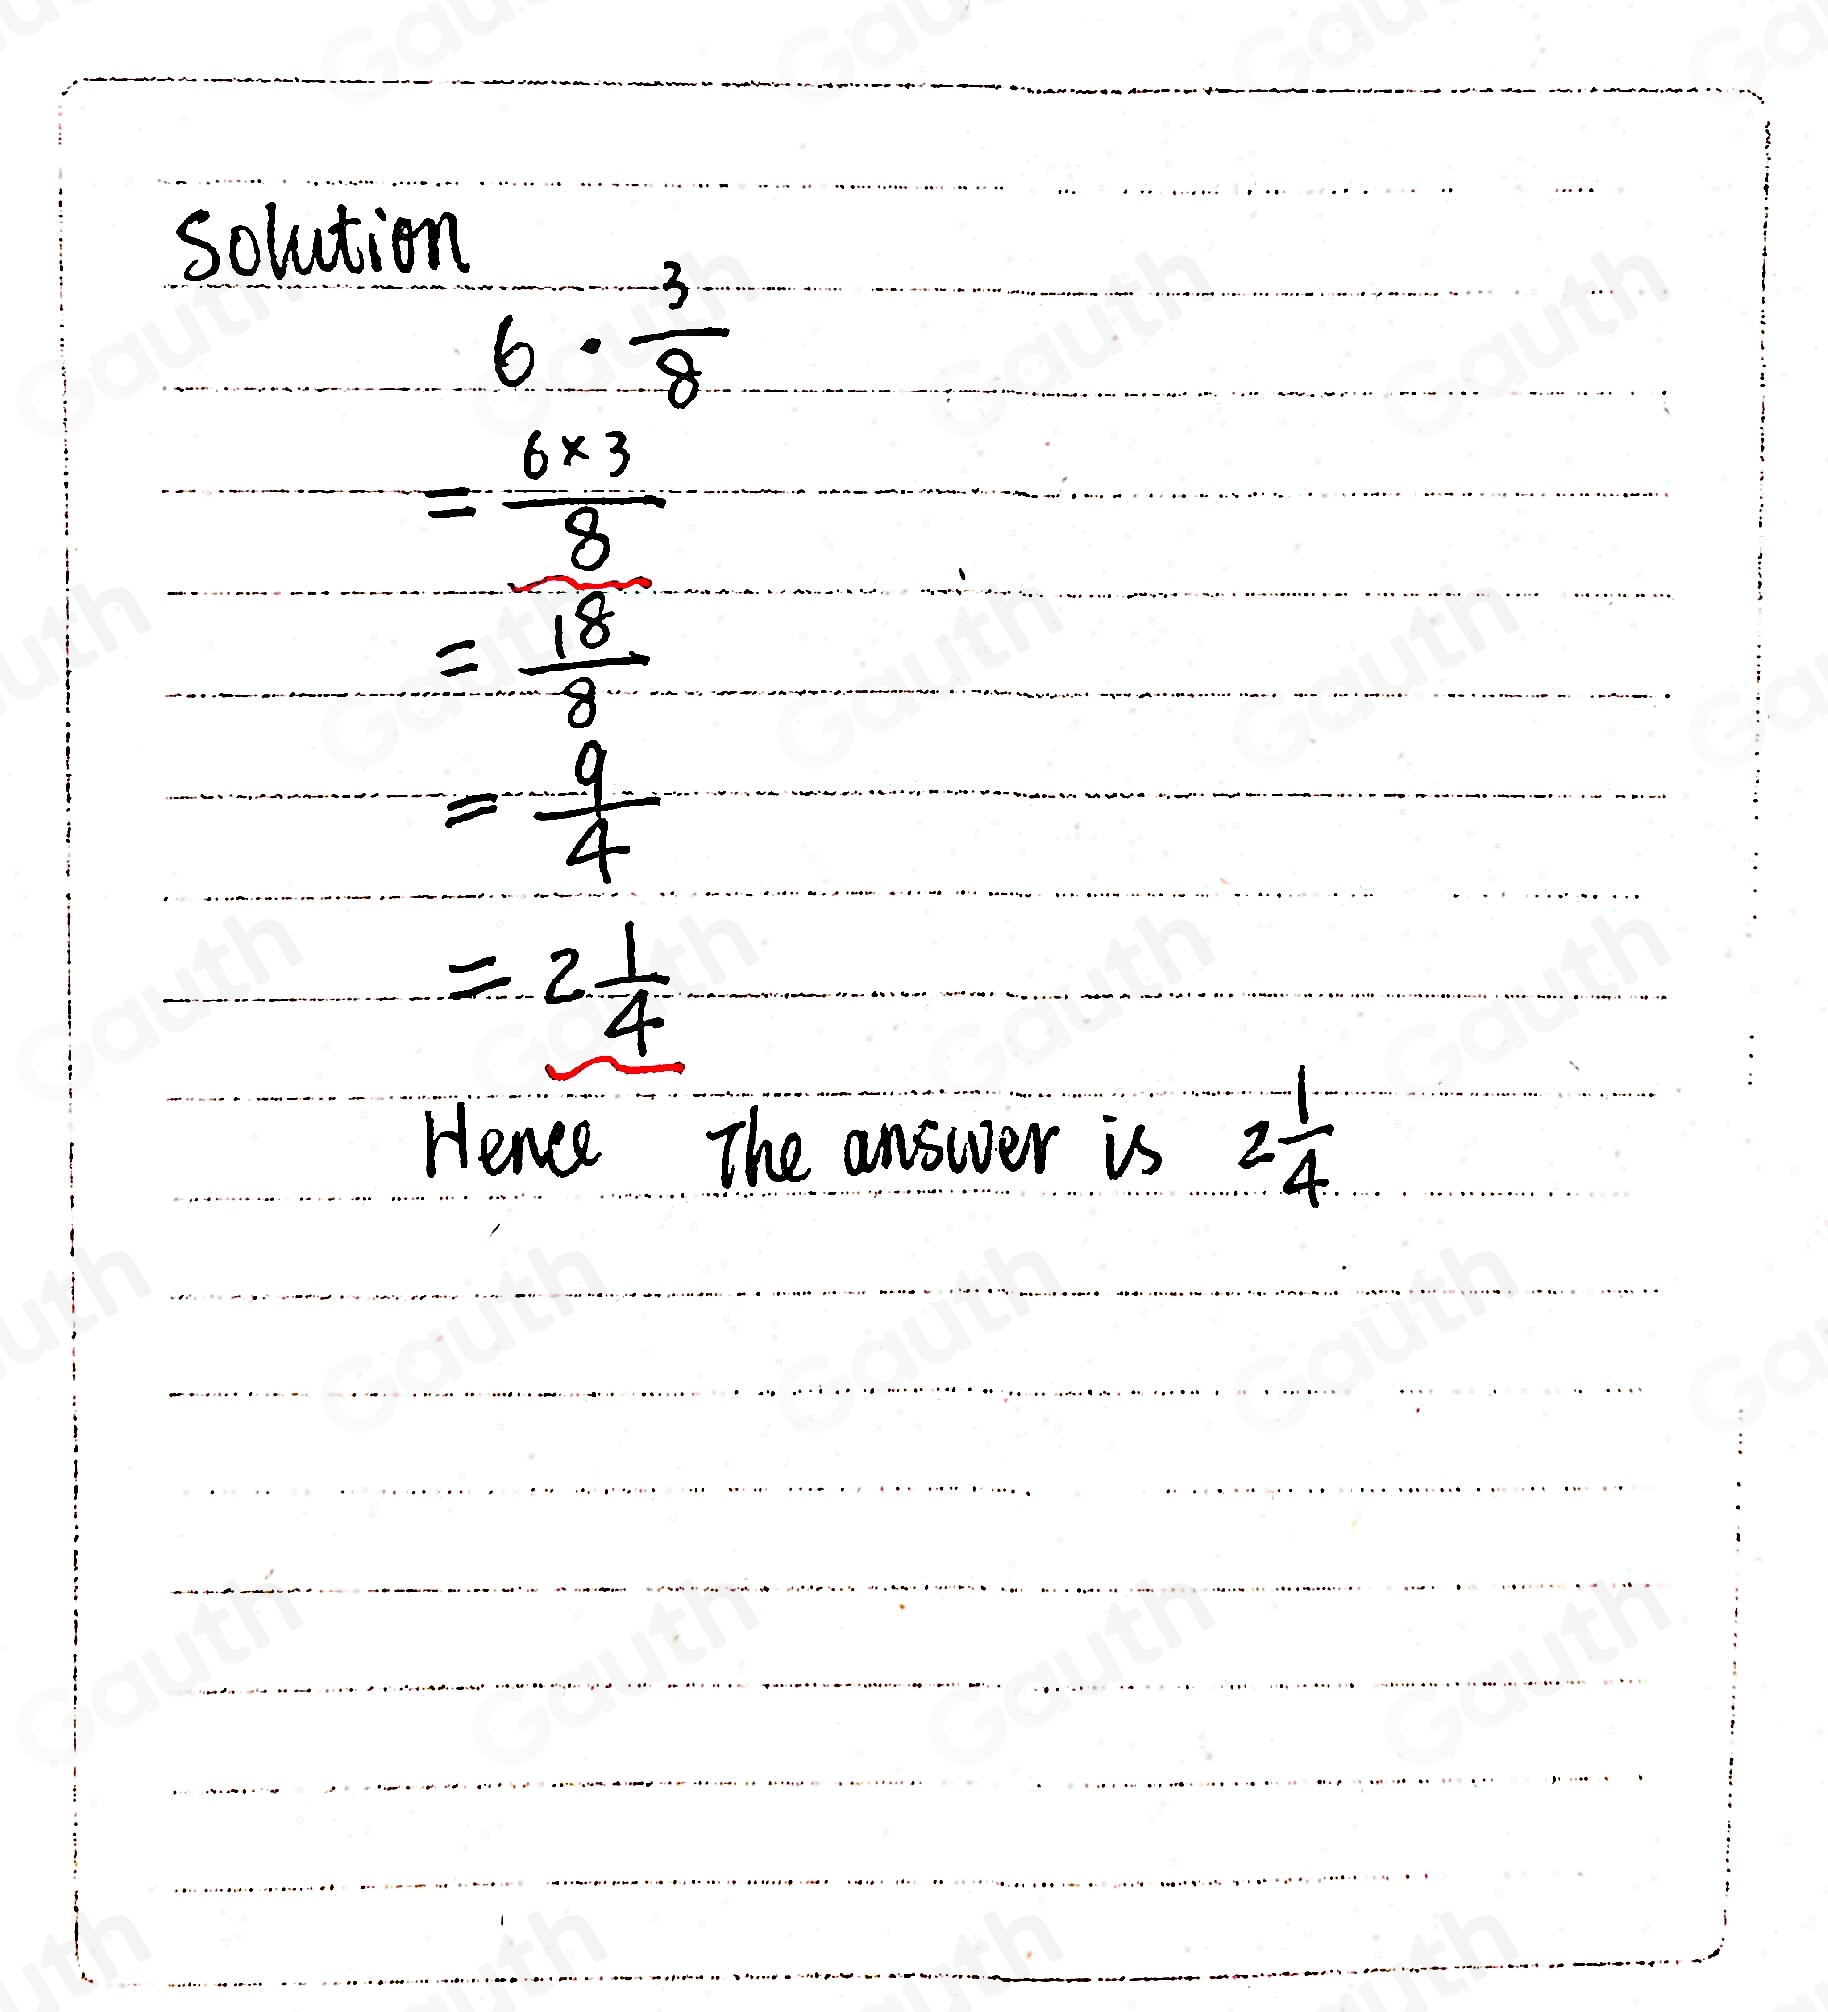 Solution
6 · 3/8
= 6 × 3 / 8
= 18/8
= 9/4
= 2 1/4
Hence The answer is 2 1/4
Gauth